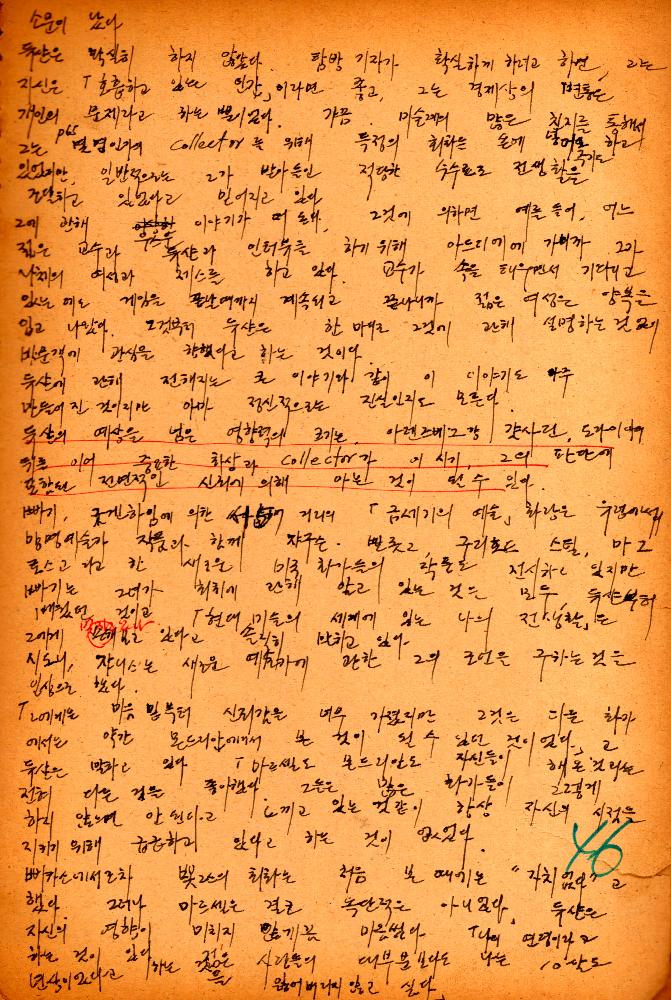 소문이 났다
듀샹은 확실히 하지 않았다. 탐방 기자가 확실하게 하려고 하면, 그는
자신은 「호흡하고 있는 인간」이라면 좋고, 그는 경제상의
개인의 문제라고 하는 뿐이었다. 가끔 미술계의 많은 친지를 통해서
그는 Collector를 위해 특정의 회화를 손에 하고
있었지만, 일반적으로는 그가 받아들인 적당한 수수료로 전 생활을
있다고 믿어지고 있다
그에 관해 이야기가 떠돈다, 그것에 의하면 예를 들어, 어느
젊은 교수가 듀샹과 인터뷰를 하기 위해 아뜨리에에 가니까 그가
나체의 여성과 체스를 하고 있다. 교수가 속을 태우면서 기다리고
있는데도 게임은 끝날때까지 계속되고 끝나니까 젊은 여성은 양복을
입고 나갔다. 그것부터 듀샹은 한 마디로 그것에 관해 설명하는 것 없이
방문객에 관심을 향했다고 하는 것이다.
듀샹에 관해 전해지는 큰 이야기와 같이 이 이야기도 아주
만들어진 것이지만 아마 정신적으로는 진실인지도 모른다.
듀샹의 예상을 넘은 영향력의 크기는, 아렌즈버그랑 캿사린, 도라이어
뒤를 이어 중요한 화상과 Collector가 이 시기, 그의 판단에
표한 전면적인 신뢰에 의해 아는 것이 될 수 있다.
뻬기, 굿겐하임에 의한 거리의 「금세기의 예술」 화랑은 유럽에서
망명예술가 작품과 함께 쟈크슨·빨롯고, 구리호드 스틸, 마그
로스고 라고 한 새로운 미국 화가들의 작품도 전시하고 있지만
뻬기는 그녀가 회화에 관해 알고 있는 것은 모두 듀샹부터
배웠던 것이고 「현대미술의 세계에 있는 나의 전생활」은
그에게 있다고 솔직히 말하고 있다.
시도니, 쟈니스는 새로운 예술가에 관한 그의 조언은 구하는 것을
일상으로 했다.
「그에게는 마음 밑부터 신뢰감은 너무 가졌지만 그것은 다른 화가
에서는 약간 몬드리안에게서 본 것이 될 수 있던 것이 없다.」고
듀샹은 말하고 있다 「마르셀도 몬드리안도 자신들이 해온 것과는
전혀 다른 것을 좋아했다. 그들은 많은 화가들이 그렇게
하지 않으면 안 된다고 느끼고 있는 것같이 항상 자신의 시점을
지키기 위해 급급하고 있다고 하는 것이 없었다.
46
삐카소에서조차 뽓고스의 회화는 처음 본 때에는 "가치 없다"고
했다. 그러나 마르셀은 결코 독단적은 아니었다, 듀샹은
자신의 영향이 미치지 않게끔 마음썼다. 「나의 연령이라고
하는 것이 있다 하는 젊은 사람들의 대부분보다도 나는 10살도
연상이었다고 잃어버리지 않고 싶다.